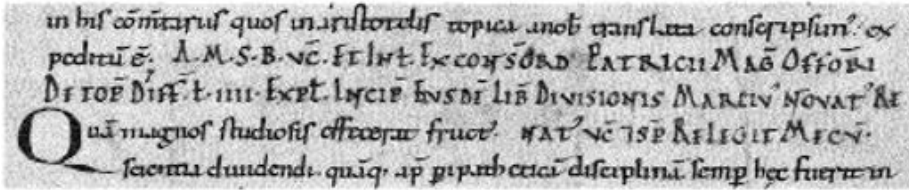 in his cōm̄tariis quos in aristotelis topica a nob̄ translata conscripsim᾽. ex
peditū ē. A. M. S. B. VC̄. ET INL̄. EXCONSŌRD̄ PATRICII MAḠ OFFORI
DE TOP̄ DIFF̄. L. IIII. EXPL̄. INCIP̄ EVSDĒ LIB̄ DIVISIONIS MARCIV᾽ NOVAT᾽ RE
Quā magnos studiosis efferat fruct᾽. NAT᾽ VC̄ ISP̄ RELEGIT MECV̄.
scientia diuidendi. quāq᾽ ap̄ peripatheticā disciplinā semp̄ hęc fuerit in